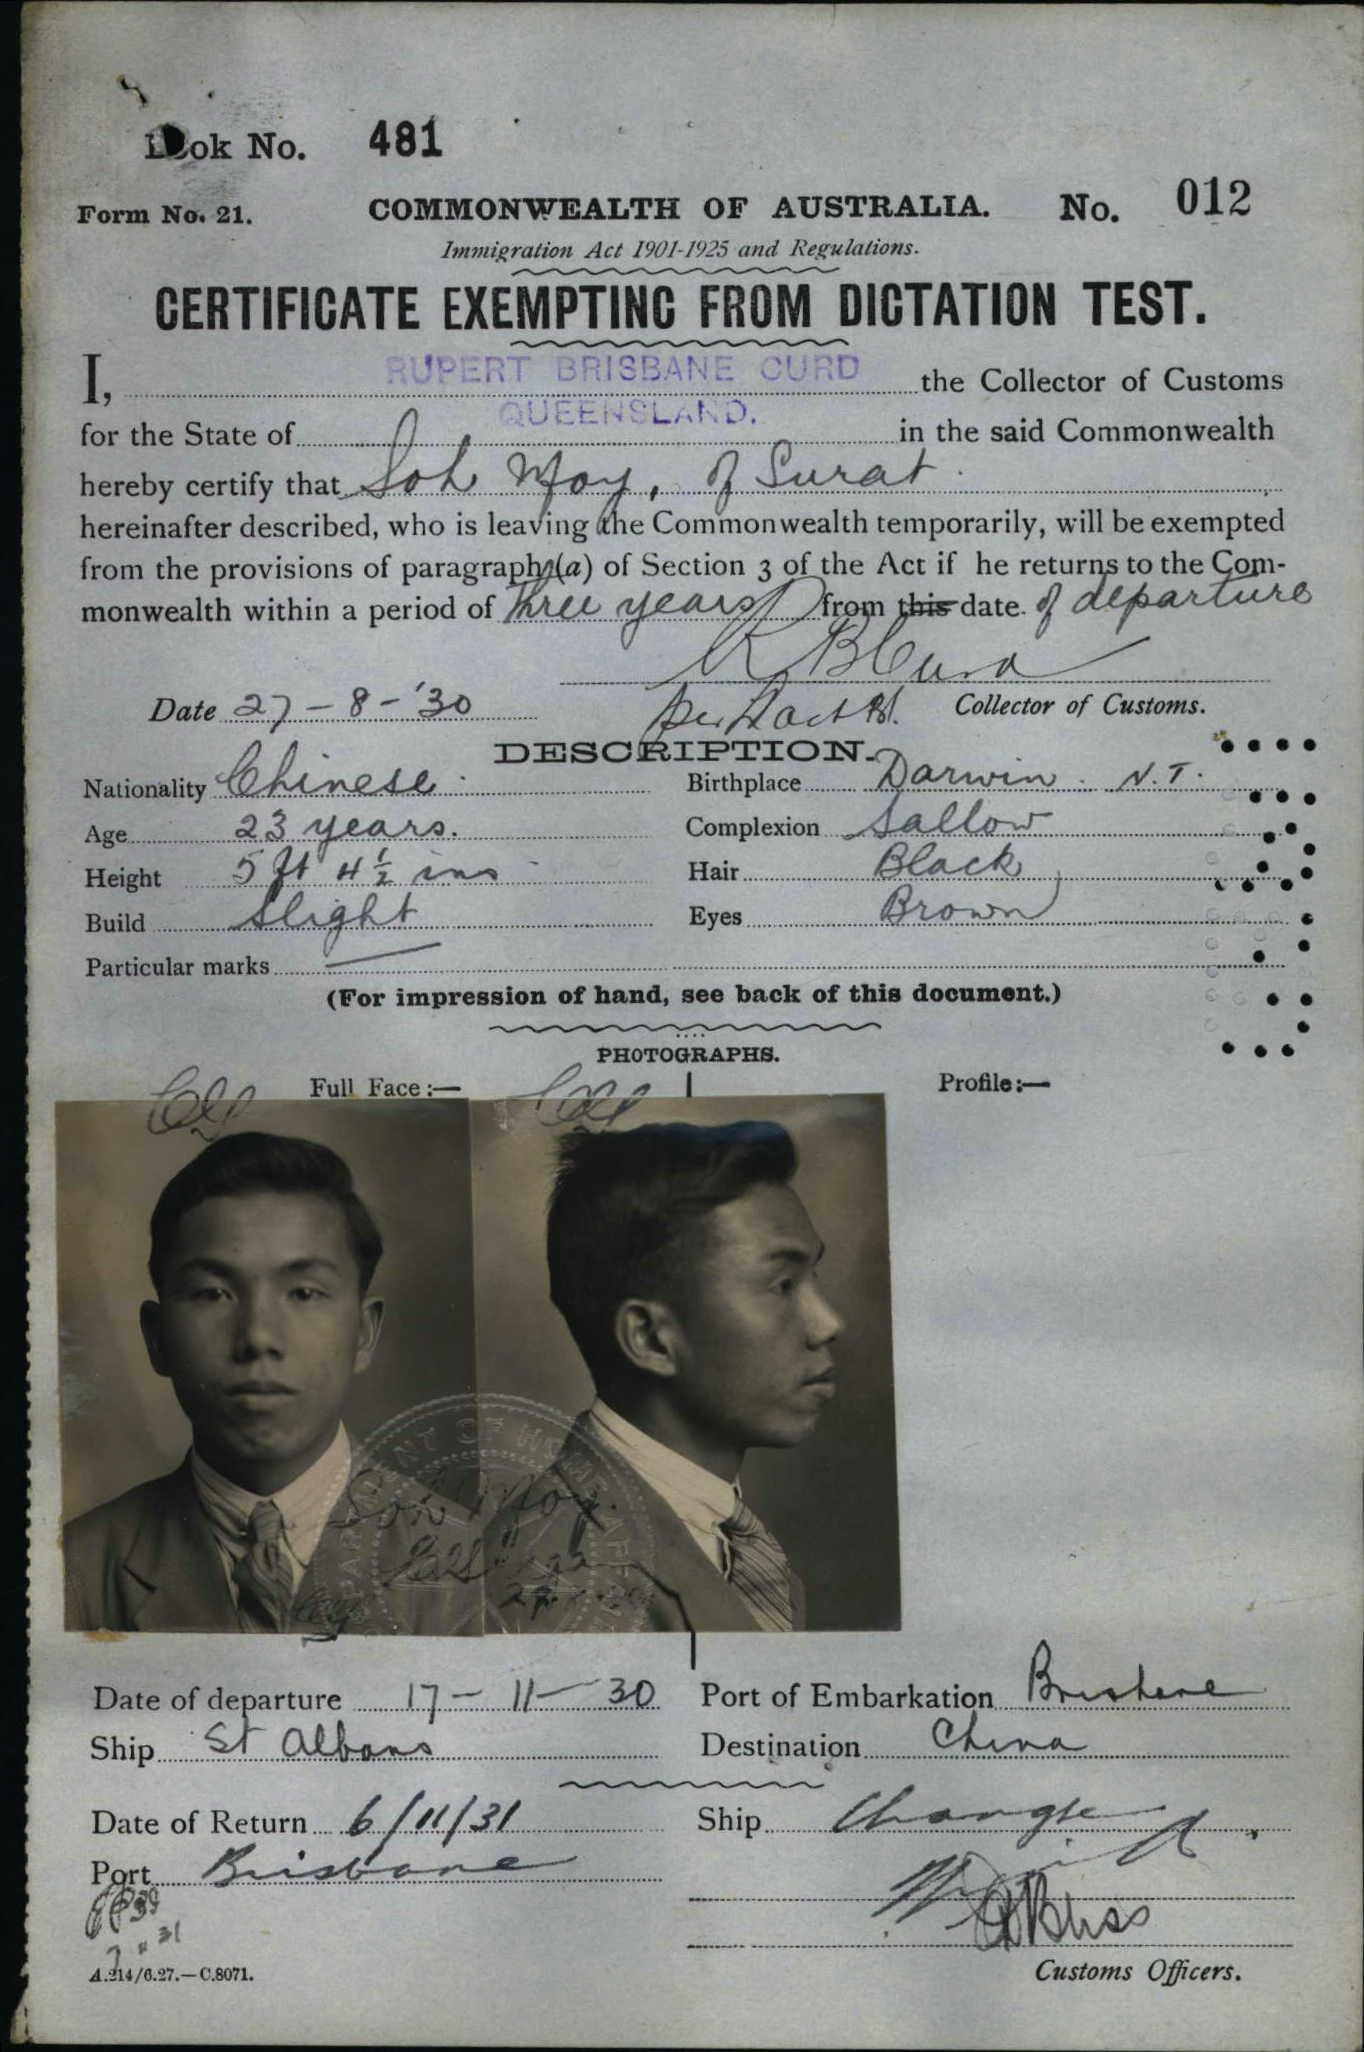 Book No. 481
Form No. 21. COMMONWEALTH OF AUSTRALIA. No. 012
Immigration Act 1901-1925 and Regulations.
CERTIFICATE EXEMPTING FROM DICTATION TEST.
I, RUPERT BRISBANE CURD the Collector of Customs
for the State of QUEENSLAND. in the said Commonwealth
hereby certify that Soh Moy, of Surat
hereinafter described, who is leaving the Commonwealth temporarily, will be exempted
from the provisions of paragraph (a) of Section 3 of the Act if he returns to the Com-
monwealth within a period of three years from this date of departure
R B Curd
Date 27-8-'30 Collector of Customs.
DESCRIPTION.
Nationality Chinese Birthplace Darwin N.T.
Age 23 years. Complexion Sallow
Height 5 ft 4½ ins Hair Black
Build Slight Eyes Brown
Particular marks —
(For impression of hand, see back of this document.)
PHOTOGRAPHS.
Full Face:— Profile:—
Soh Moy.
Date of departure 17-11-30 Port of Embarkation Brisbane
Ship St Albans Destination China
Date of Return 6/11/31 Ship Changte
Port Brisbane
Bliss
A.214/6.27.—C.8071. Customs Officers.